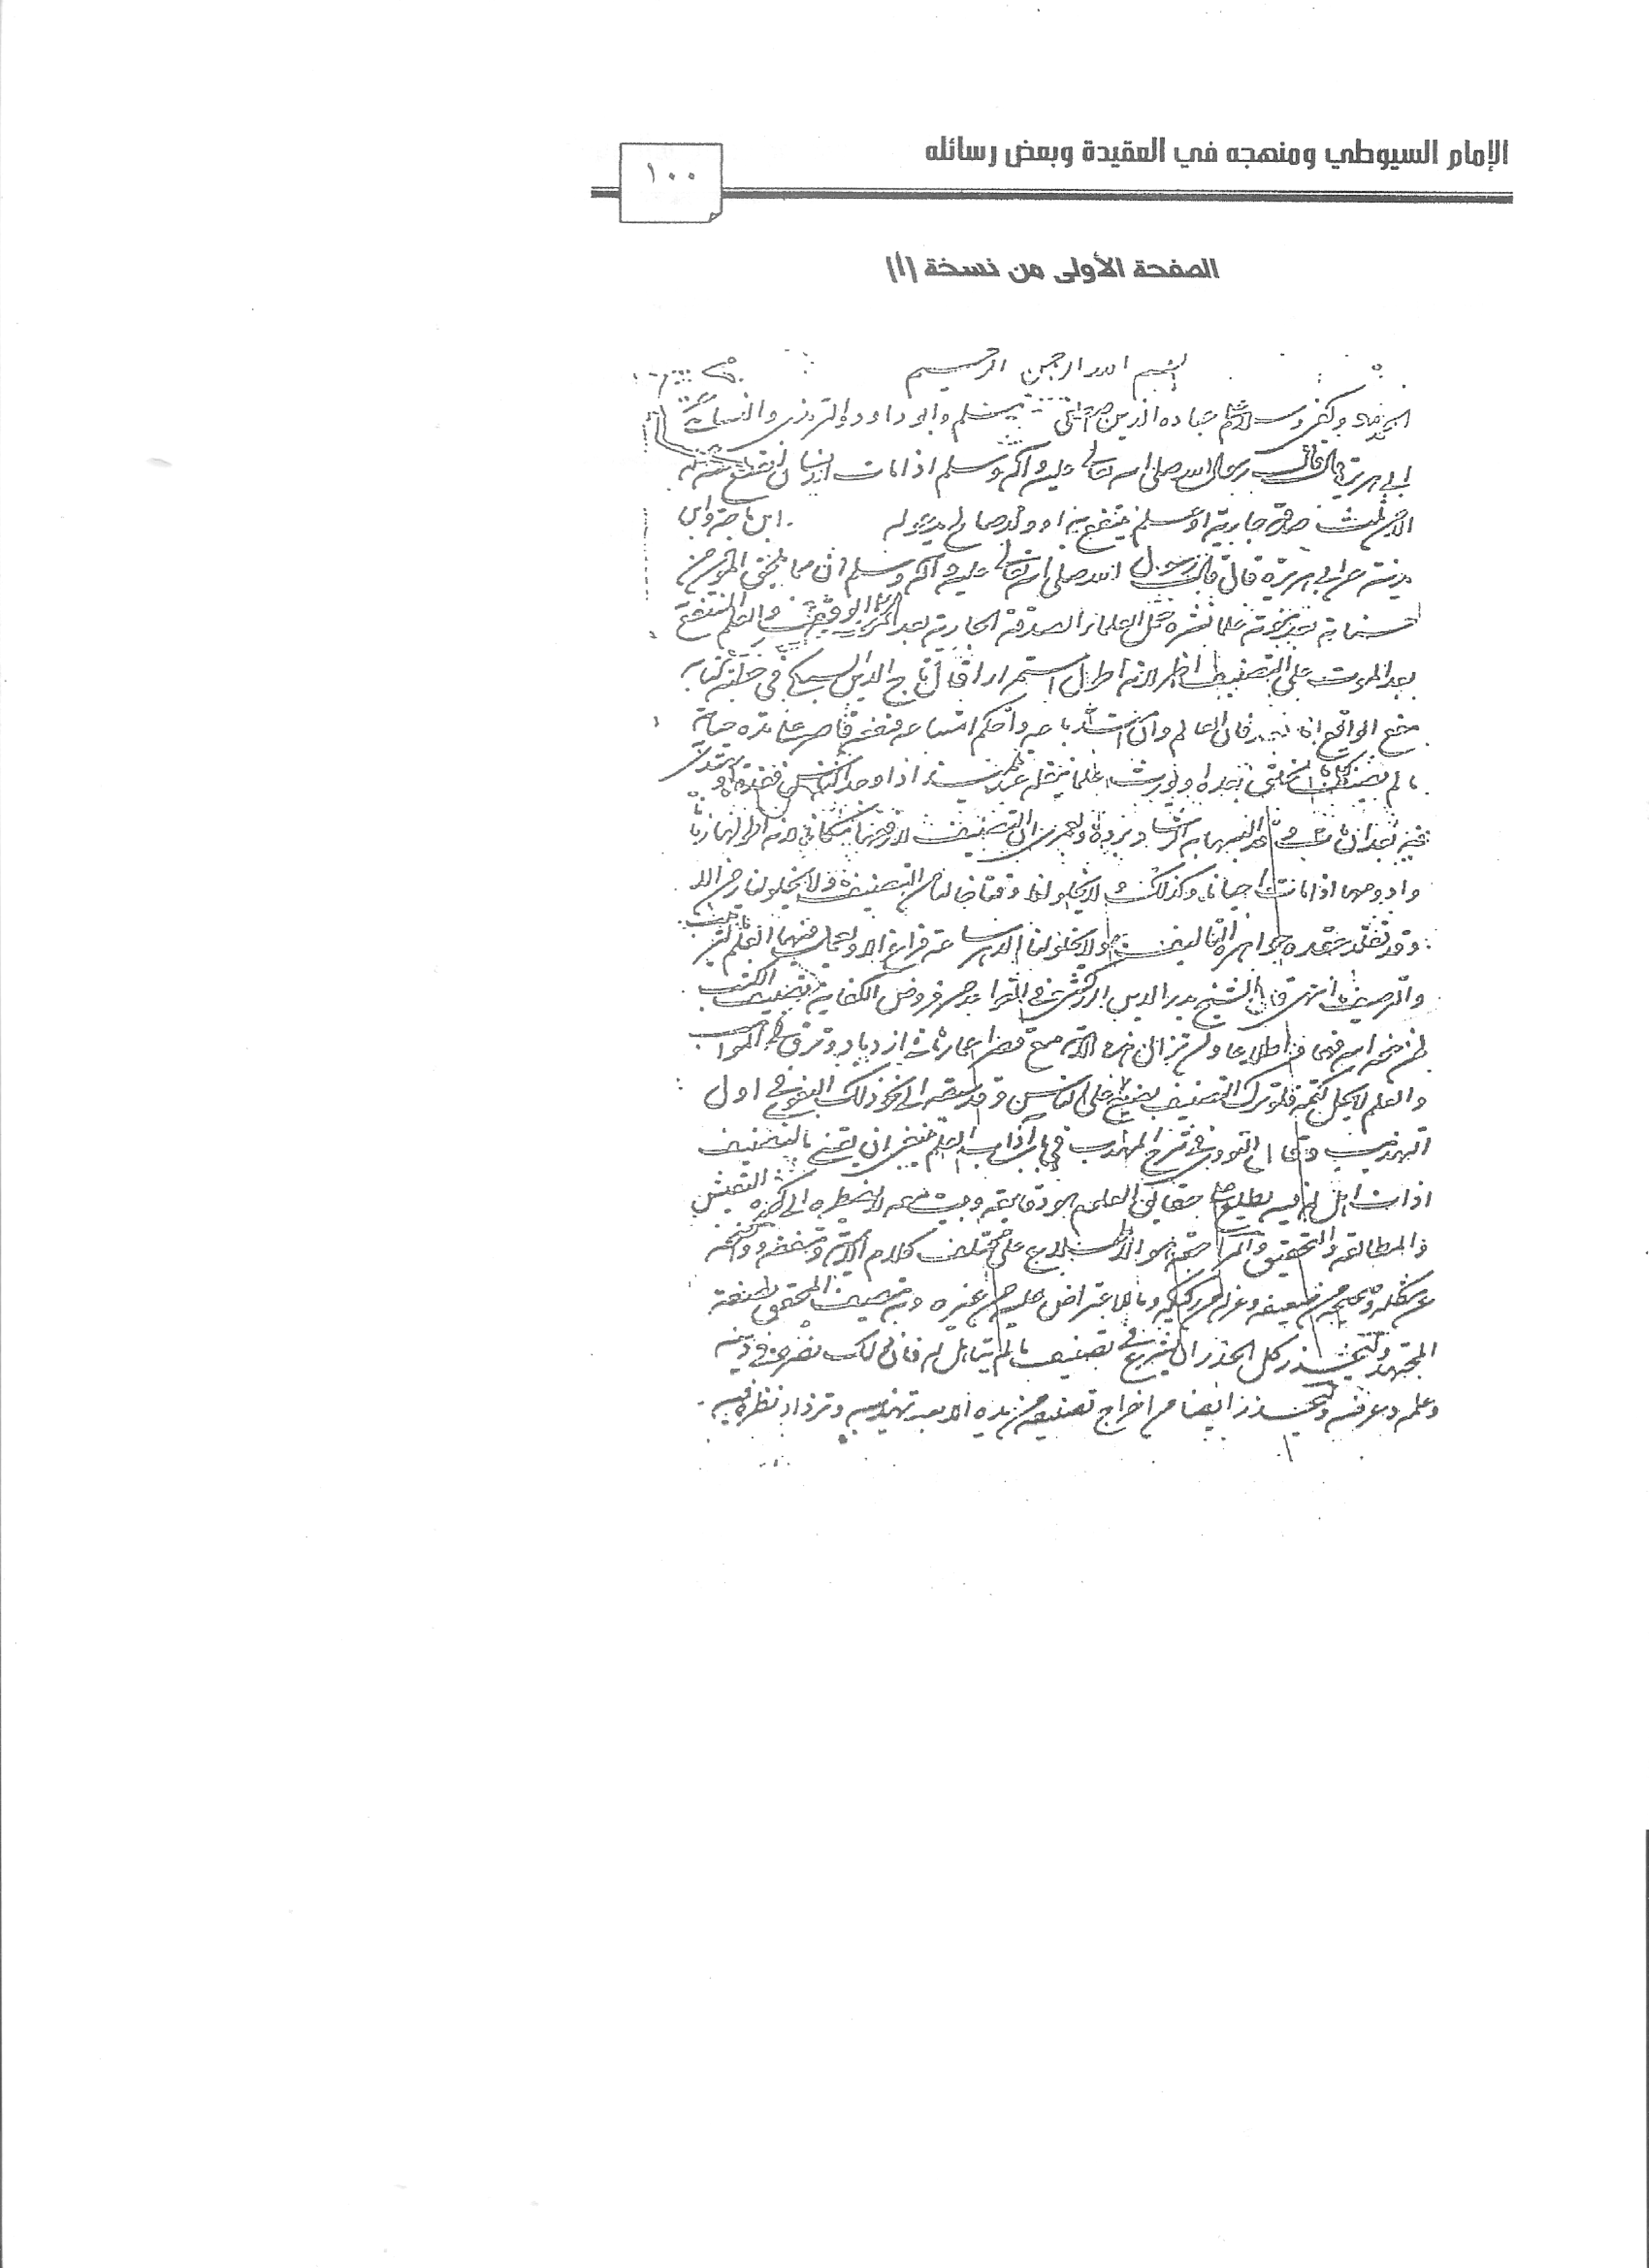 الإمام السيوطي ومنهجه في العقيدة وبعض رسائله
١٠٠
الصفحة الأولى من نسخة (أ)
بسم الله الرحمن الرحيم
الحمد لله وكفى وسلام على عباده الذين اصطفى مسلم وابو داود والترمذي والنسائي
ابي هريرة قال قال رسول الله صلى الله تعالى عليه وآله وسلم اذا مات الانسان انقطع عمله
الا من ثلث صدقة جارية او علم ينتفع به او ولد صالح يدعو له ابن ماجة وابن
عن ابي هريرة قال قال رسول الله صلى الله تعالى عليه وآله وسلم ان مما يلحق المؤمن من
حسناته بعد موته علما نشره حمل العلماء الصدقة الجارية بعد الموت على الوقف والعلم المنتفع
بعد الموت على التصنيف لانه اطول استمرارا قال تاج الدين السبكي في خطبة كتابه
العالم وان باعه واتسع قاصر على مدة حياته
ما لم يصنف كتابا بعده او يورث علما ينقله عنه تلميذ اذا وجد الناس
به ولعمري ان التصنيف لارفعها مكانا لانه اطولها زمانا
وادومها اذا مات احيانا وكذلك لا يخلو لنا وقت من التصنيف ولا يخلو لنا زمن الا
وقد تقلد عقده جواهر التأليف ولا يخلو لنا الدهر ساعة فراغ الا ويعمل فيها القلم
والترصيف انتهى قال الشيخ بدر الدين الزركشي في القواعد من فروض الكفاية تصنيف الكتب
لمن منحه الله فهما واطلاعا ولن تزال هذه الامة مع قصر اعمارها في ازدياد وترق في المواهب
والعلم لا يحل كتمه فلو ترك التصنيف لضيع العلم على الناس وقد سبقه الى نحو ذلك البغوي في اول
التهذيب وقال النووي في شرح المهذب في باب آداب العلم ينبغي ان يعتني بالتصنيف
اذا تاهل له فبه يطلع على حقائق العلم ودقائقه ويثبت معه لانه يضطره الى كثرة التفتيش
والمطالعة والتحقيق والمراجعة والاطلاع على مختلف كلام الائمة ومتفقه وواضحه
من مشكله وصحيحه من ضعيفه وجزله من ركيكه وما لا اعتراض عليه من غيره وبه يتصف المحقق بصفة
المجتهد وليحذر كل الحذر ان يشرع في تصنيف ما لم يتاهل له فان ذلك يضره في دينه
وعلمه وعرضه وليحذر ايضا من اخراج تصنيفه من يده الا بعد تهذيبه وترداد نظره فيه